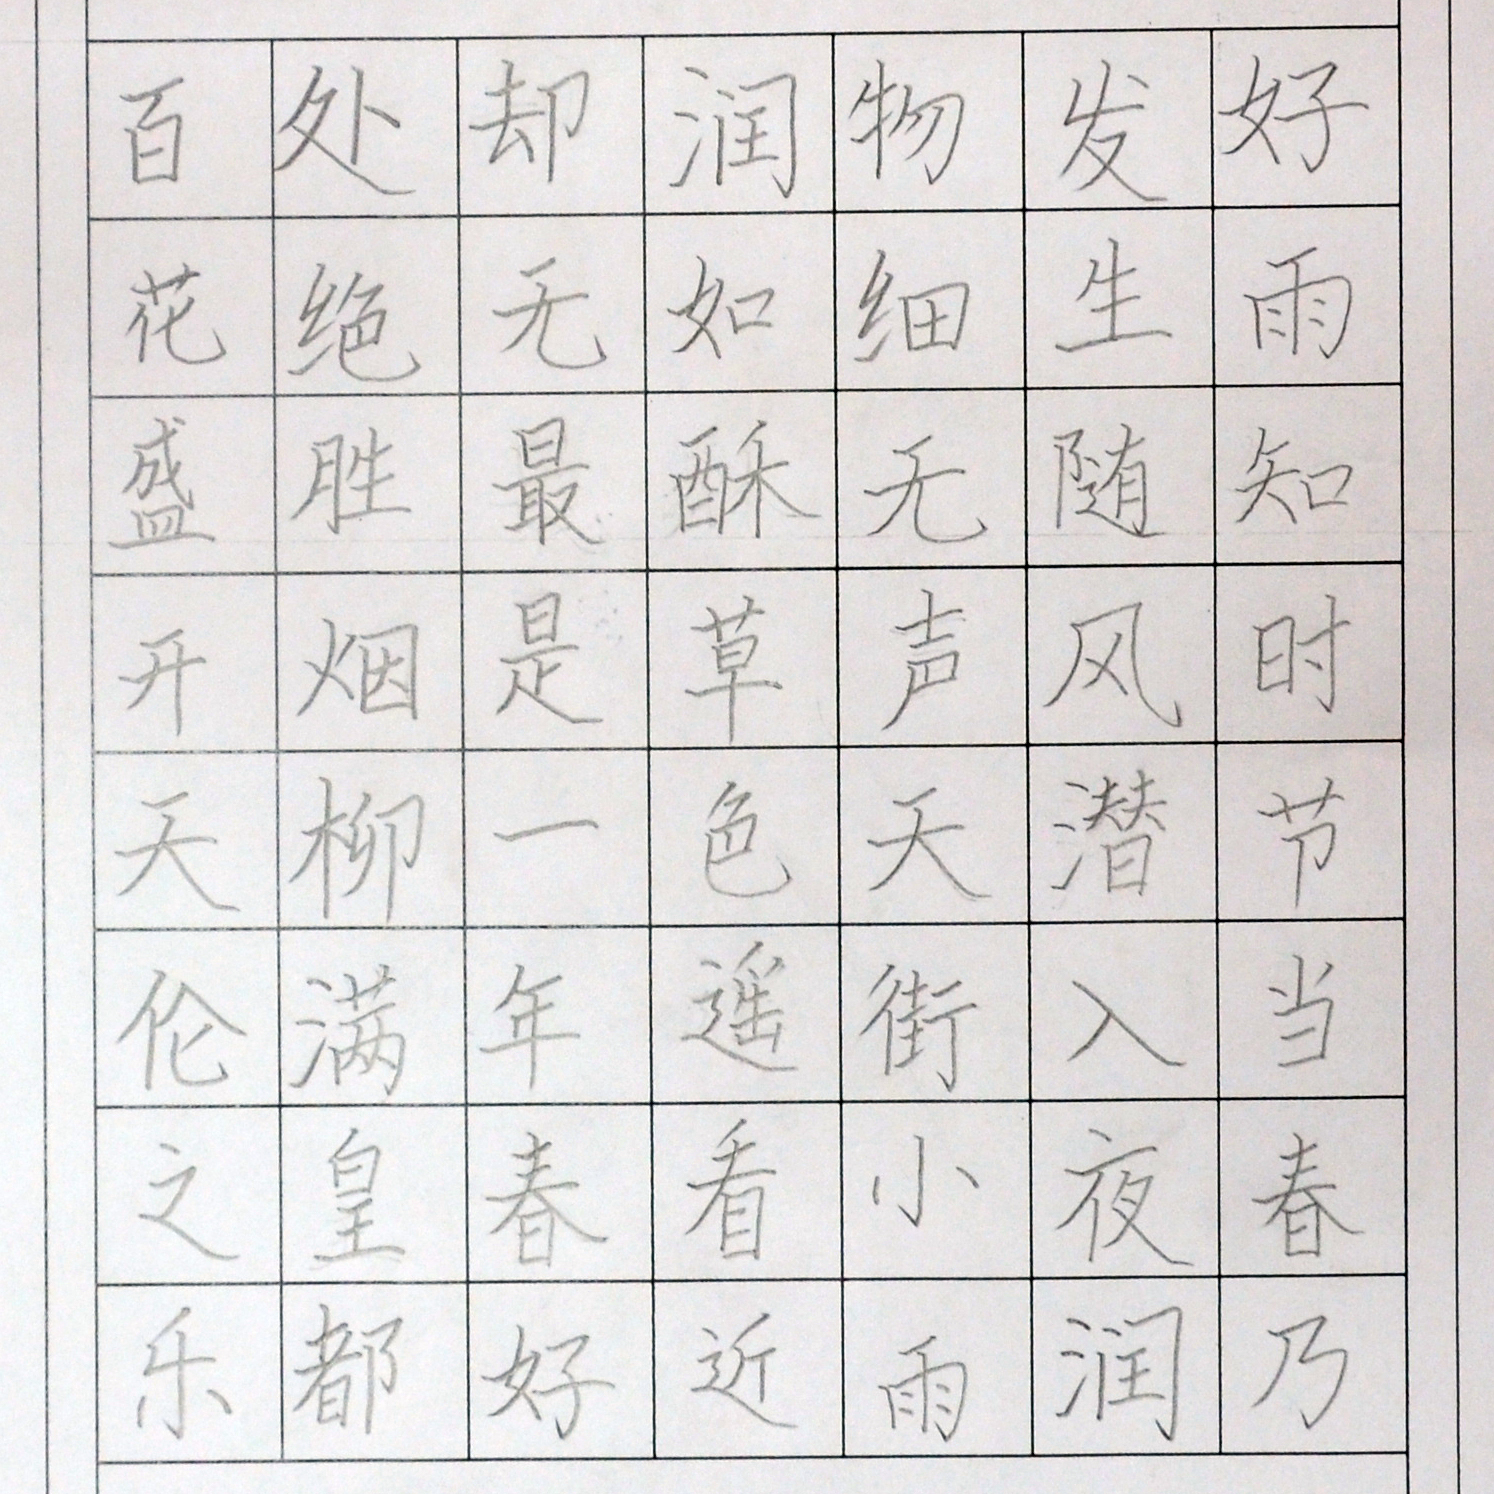 好雨知时节当春乃
发生随风潜入夜润
物细无声天街小雨
润如酥草色遥看近
却无最是一年春好
处绝胜烟柳满皇都
百花盛开天伦之乐